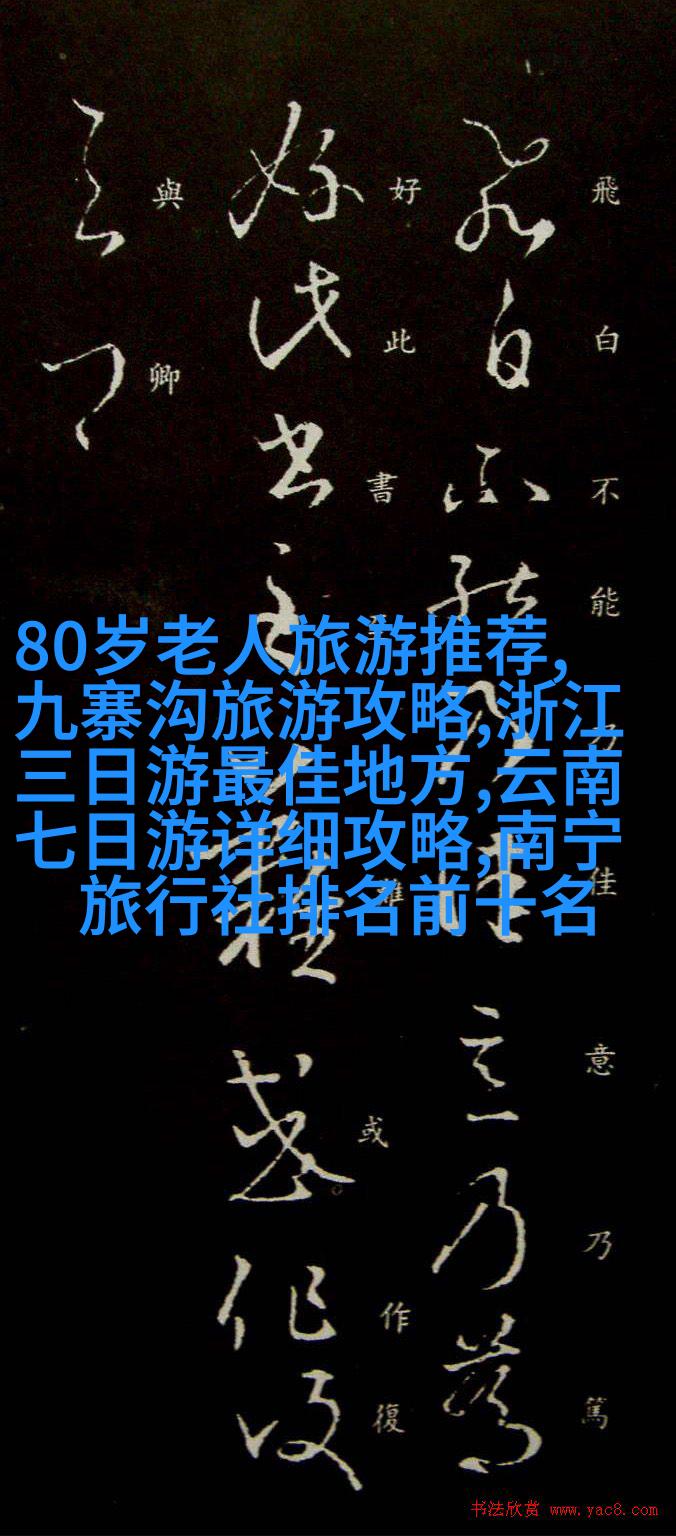 飛白不能乃佳意乃篤
好此書至難或作復
與卿
80岁老人旅游推荐,
九寨沟旅游攻略,浙江
三日游最佳地方,云南
七日游详细攻略,南宁
旅行社排名前十名
书法欣赏 www.yac8.com